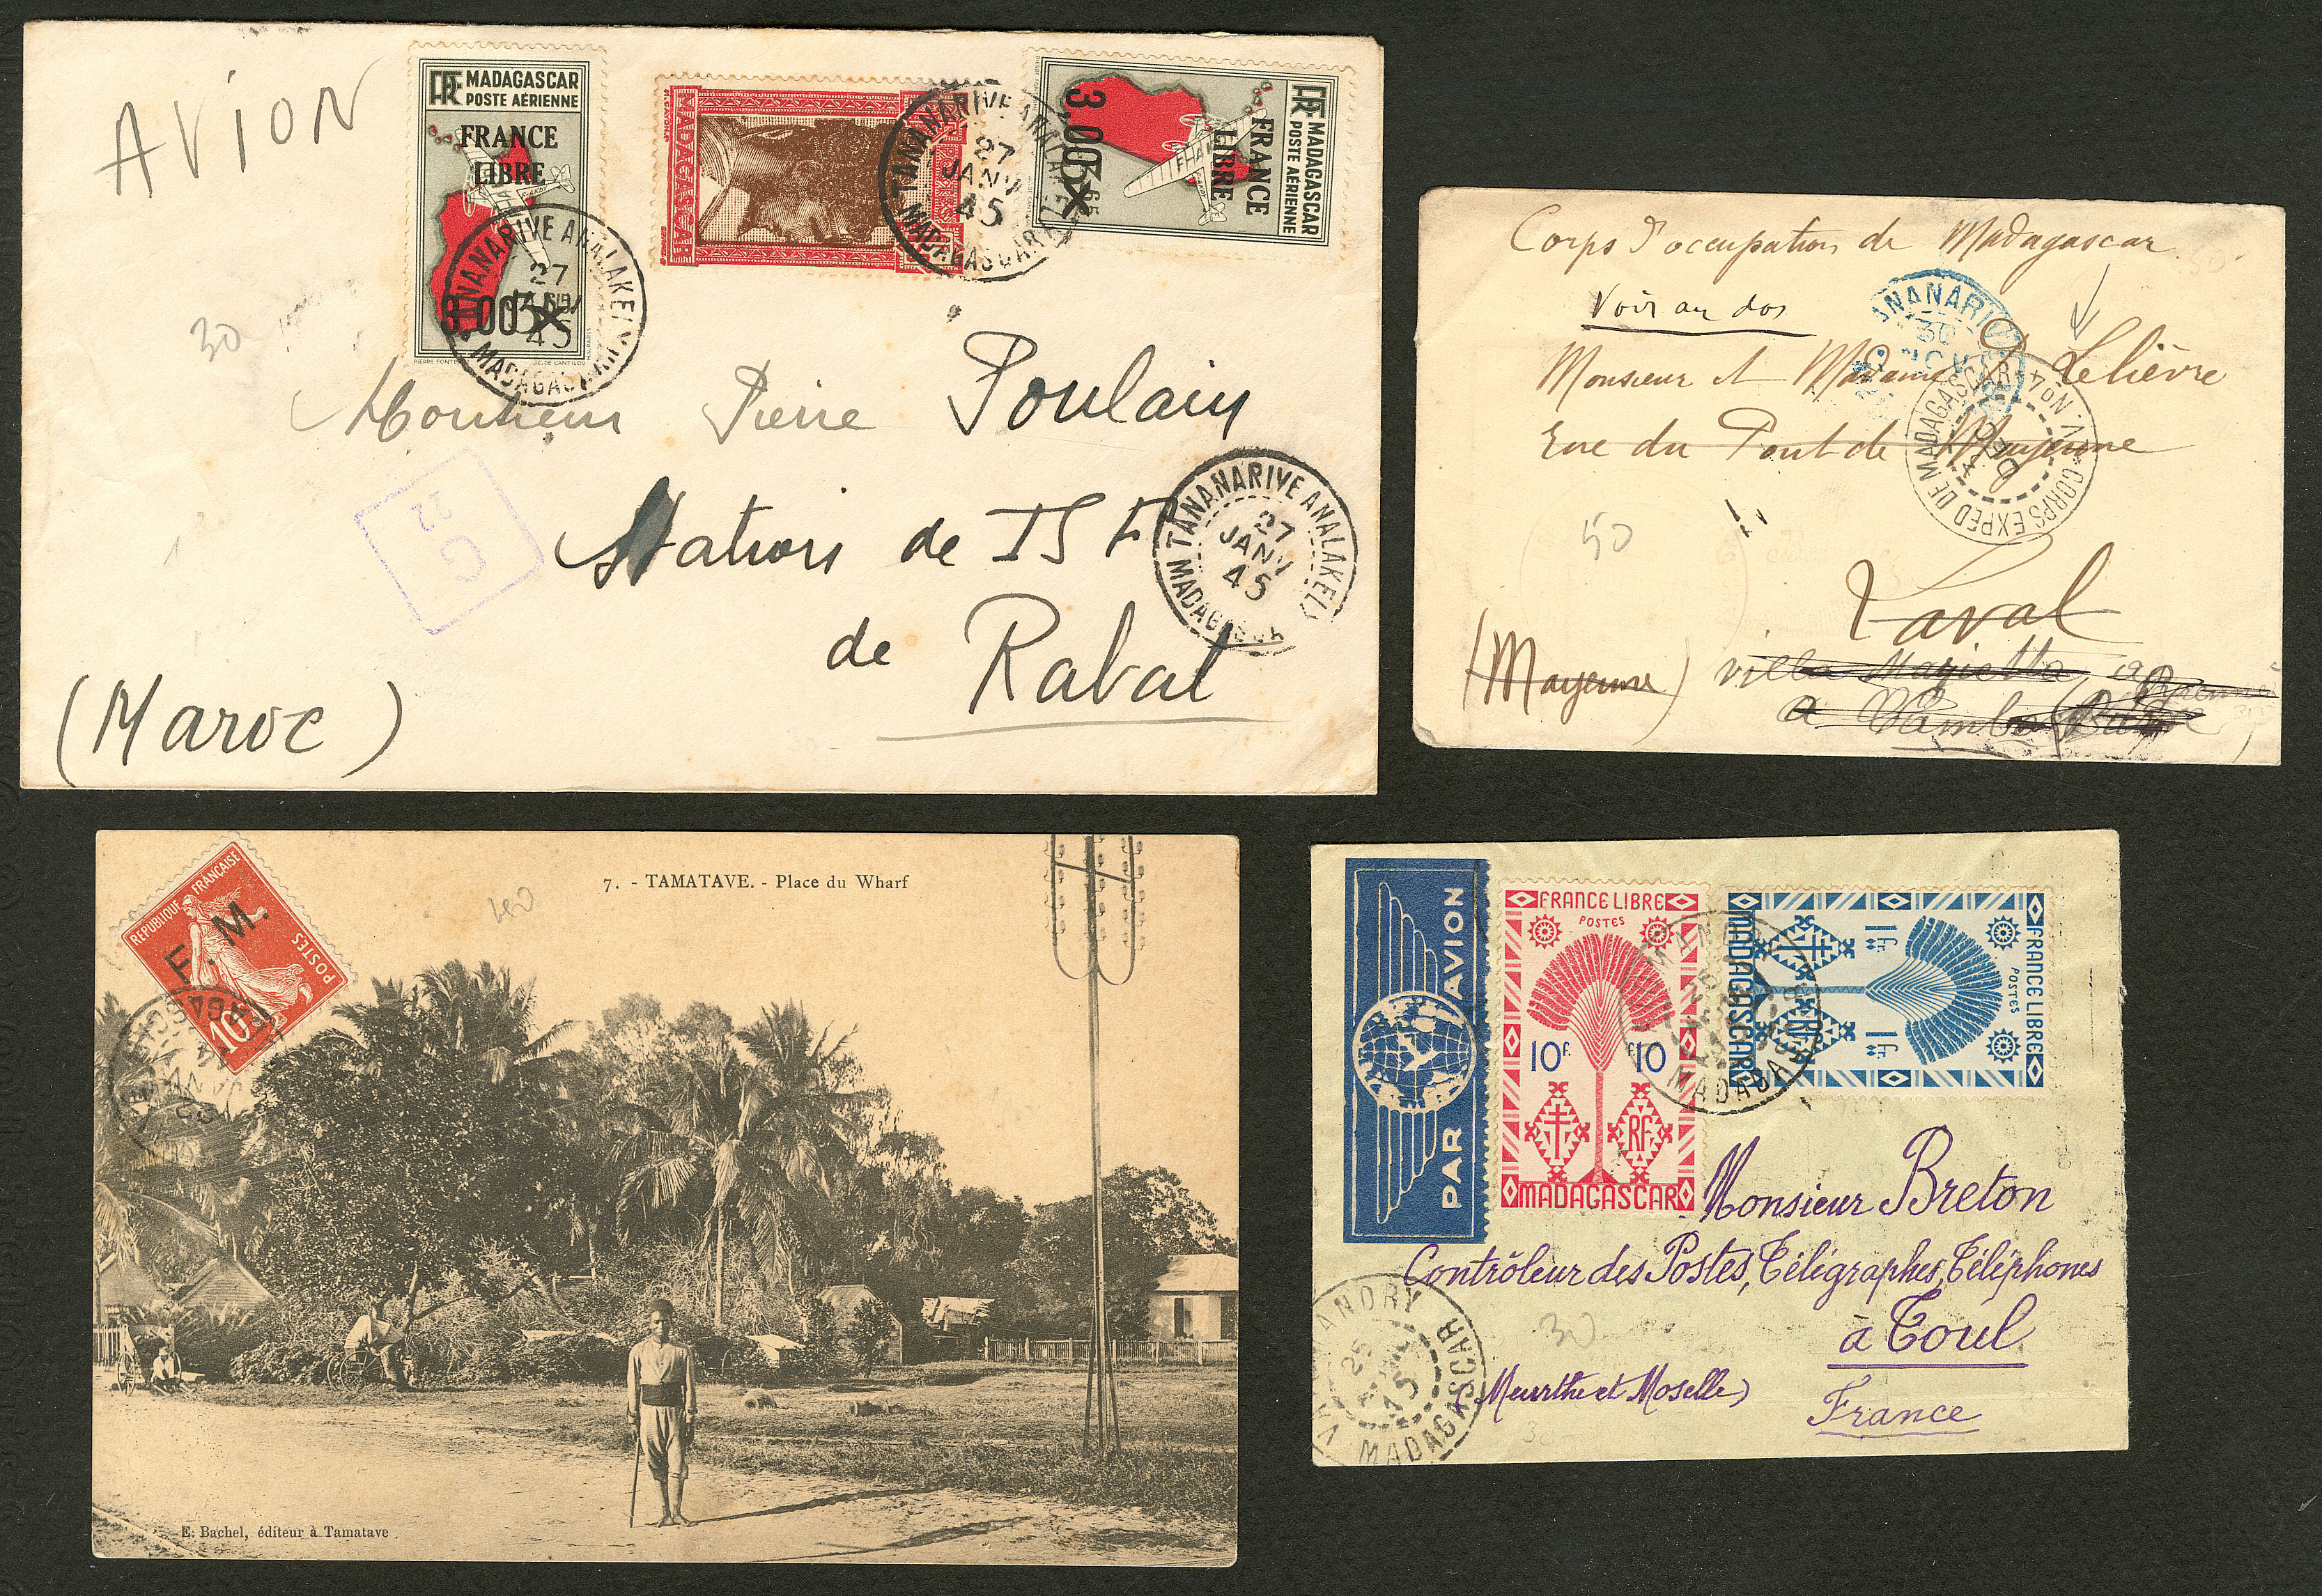 AVION
RF MADAGASCAR
POSTE AÉRIENNE
FRANCE
LIBRE
3,00
TANANARIVE ANALAKELY
27
JANV
45
MADAGASCAR
MADAGASCAR
TANANARIVE ANALAKELY
27
JANV
45
MADAGASCAR
RF MADAGASCAR
POSTE AÉRIENNE
FRANCE
LIBRE
3,00
30
Monsieur Pierre Poulain
Station de TSF
de Rabat
(Maroc)
G
22
TANANARIVE ANALAKELY
27
JANV
45
MADAGASCAR
Corps d'occupation de Madagascar
Voir au dos
Monsieur et Madame Lelièvre
Rue du Pont de Mayenne
Laval
(Mayenne)
villa Marietta
a
50
30
CORPS EXPED DE MADAGASCAR
7. - TAMATAVE. - Place du Wharf
REPUBLIQUE FRANÇAISE
POSTES
F. M.
10
E. Bachel, éditeur à Tamatave
PAR AVION
FRANCE LIBRE
POSTES
10F. F.10
RF
MADAGASCAR
FRANCE LIBRE
POSTES
1 Fr. 1 Fr.
RF
MADAGASCAR
MADAGASCAR
Monsieur Breton
Contrôleur des Postes, Télégraphes, Téléphones
à Toul
(Meurthe et Moselle)
France
30
25
45
MADAGASCAR